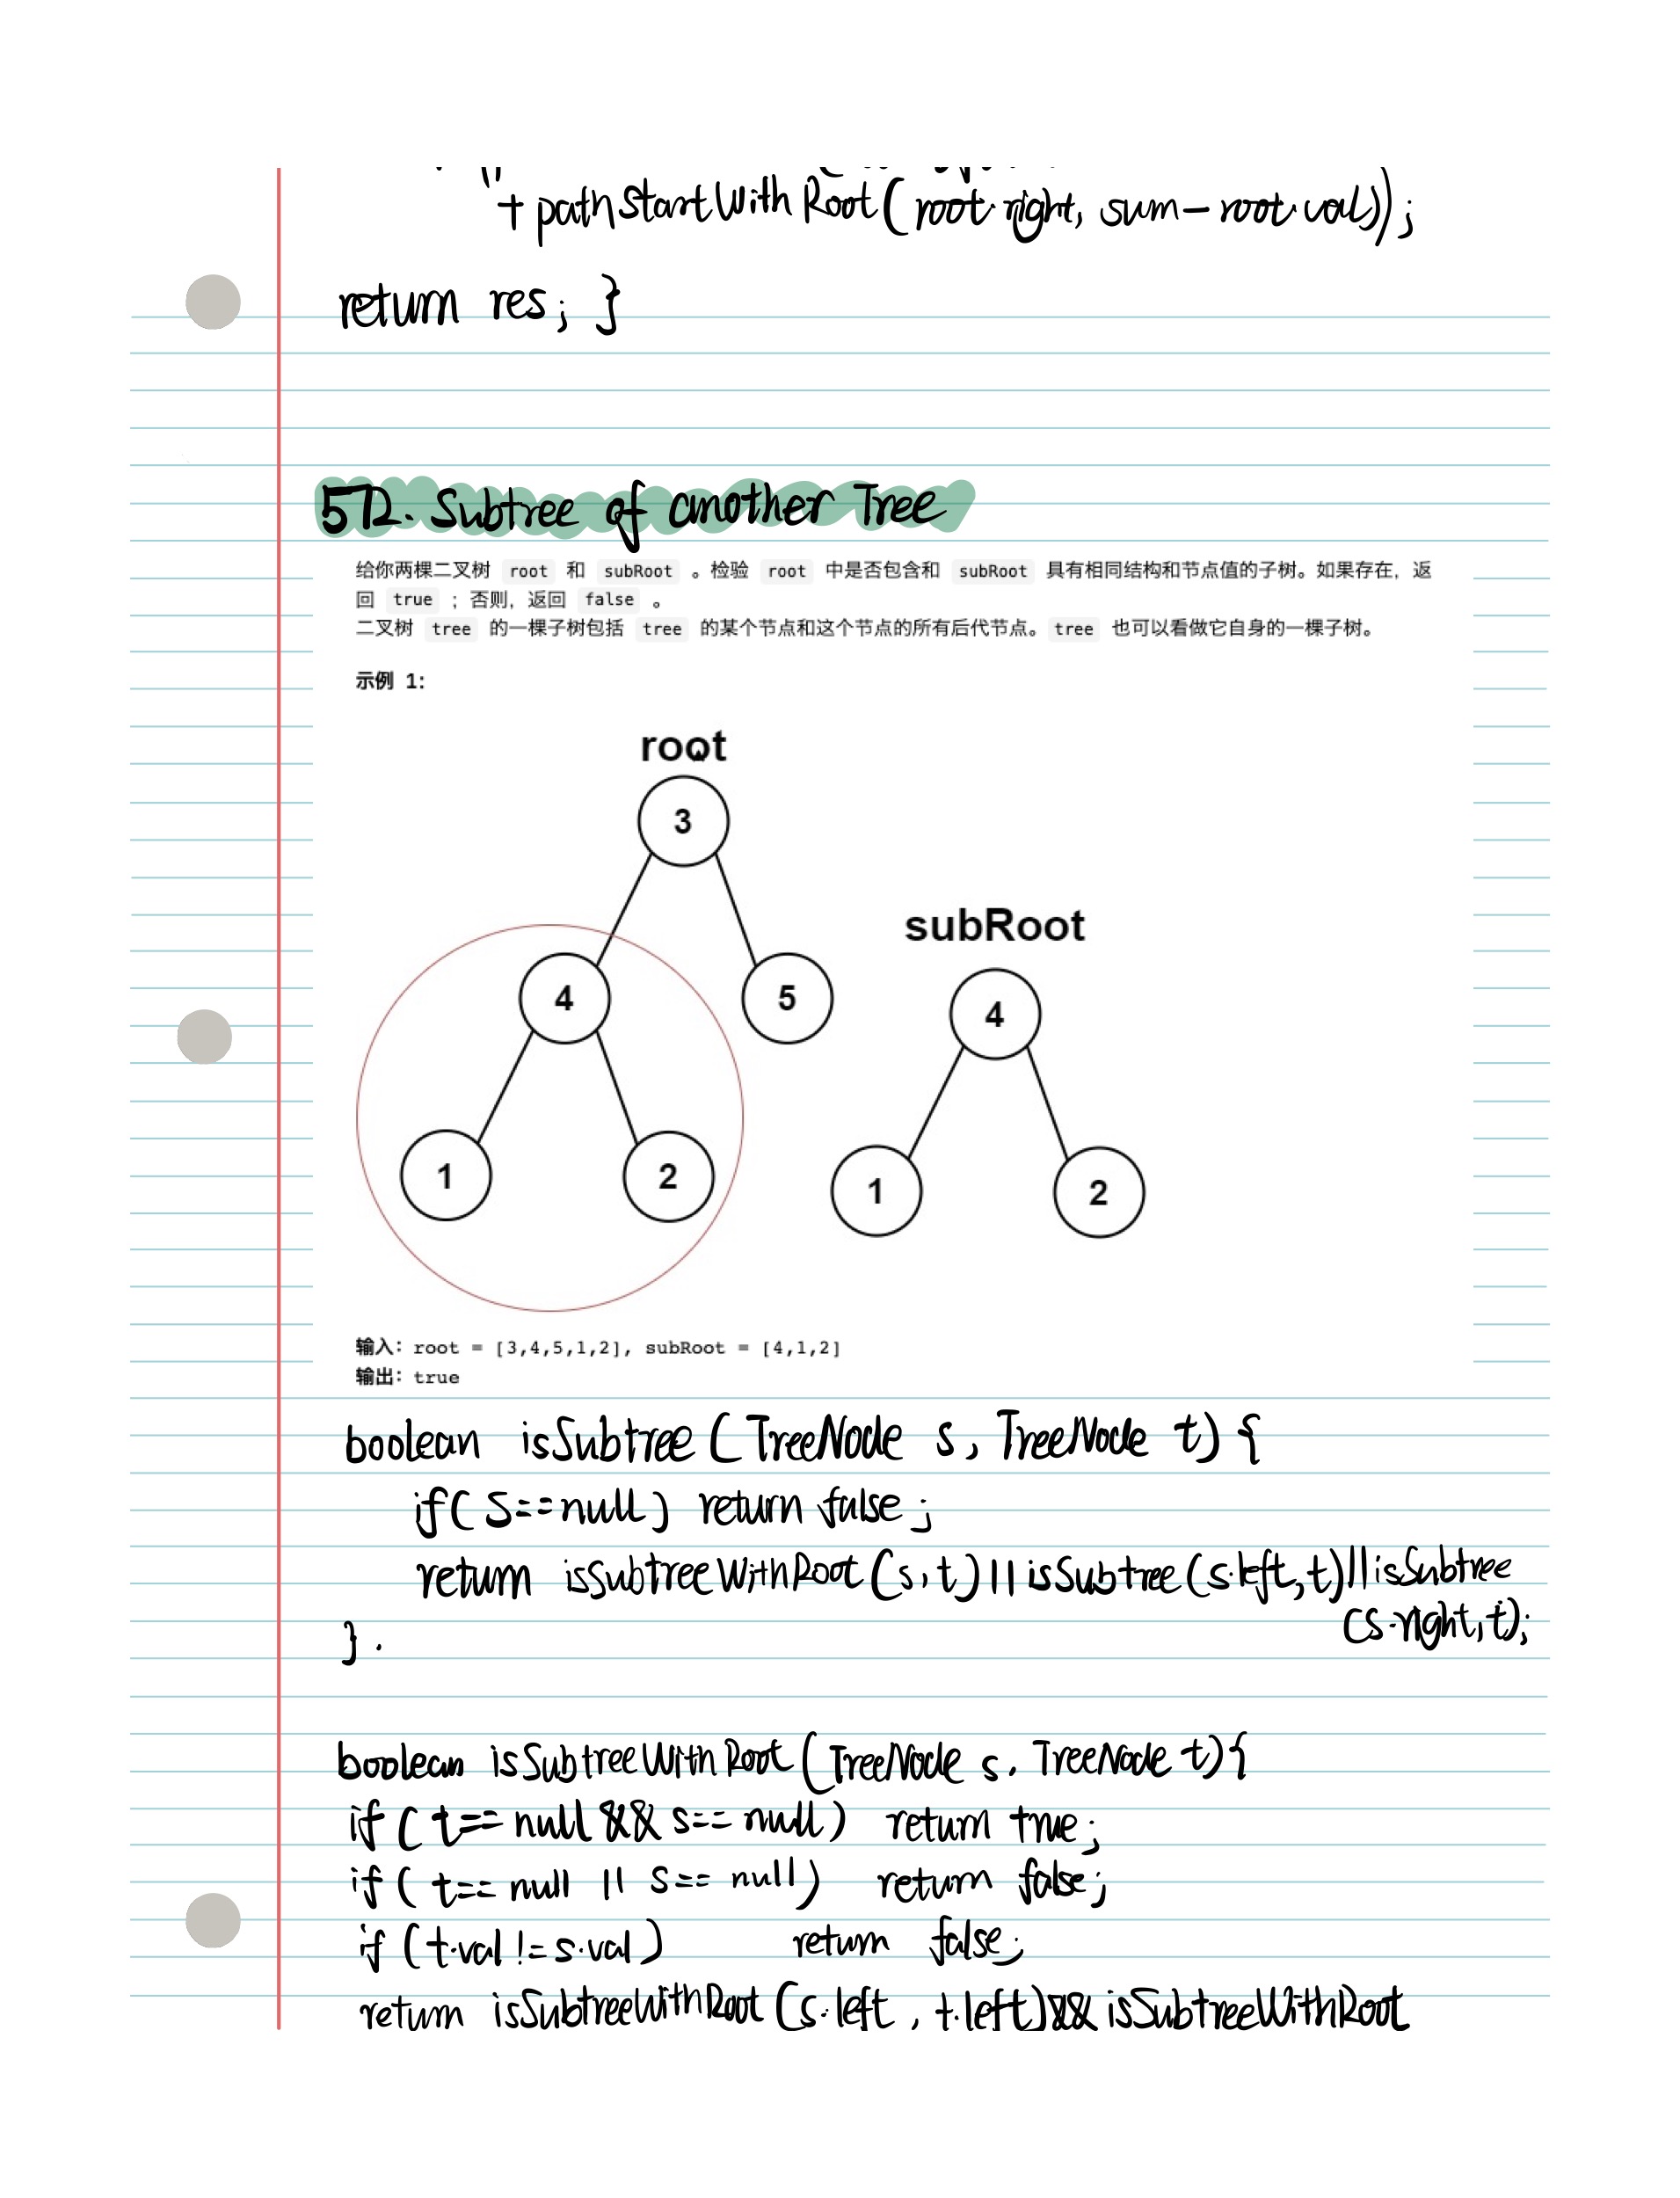 + pathStartWithRoot(root.right, sum-root.val));
return res; }
572. Subtree of another Tree
给你两棵二叉树 root 和 subRoot 。检验 root 中是否包含和 subRoot 具有相同结构和节点值的子树。如果存在，返
回 true ；否则，返回 false 。
二叉树 tree 的一棵子树包括 tree 的某个节点和这个节点的所有后代节点。tree 也可以看做它自身的一棵子树。
示例 1：
root
3
subRoot
4
5
4
1
2
1
2
输入：root = [3,4,5,1,2], subRoot = [4,1,2]
输出：true
boolean isSubtree (TreeNode s, TreeNode t) {
if( s==null ) return false;
return isSubtreeWithRoot(s,t)||isSubtree(s.left,t)||isSubtree
(s.right,t);
}.
boolean isSubtreeWithRoot(TreeNode s, TreeNode t){
if ( t== null && s== null) return true;
if ( t== null || s== null) return false;
if (t.val != s.val) return false;
return isSubtreeWithRoot(s.left , t.left)&& isSubtreeWithRoot